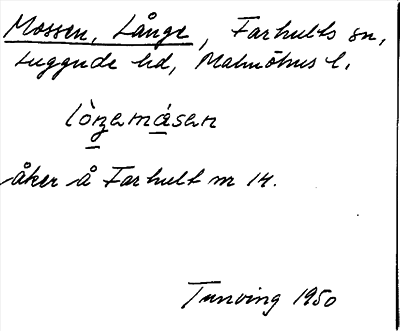 Mossen, Långe, Farhults sn,
Luggude hd, Malmöhus l.
lòŋemásen
åker å Farhult nr 14.
Tunving 1950